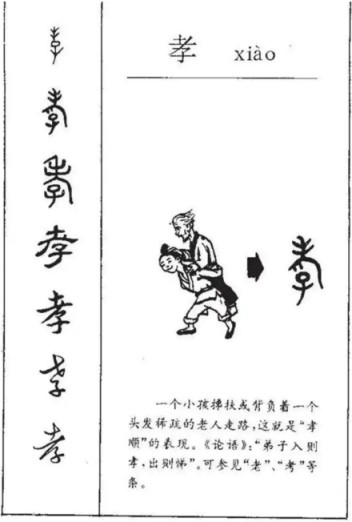 孝 xiào
一个小孩搀扶或背负着一个
头发稀疏的老人走路,这就是“孝
顺”的表现。《论语》:“弟子入则
孝,出则悌”。可参见“老”、“考”等
条。